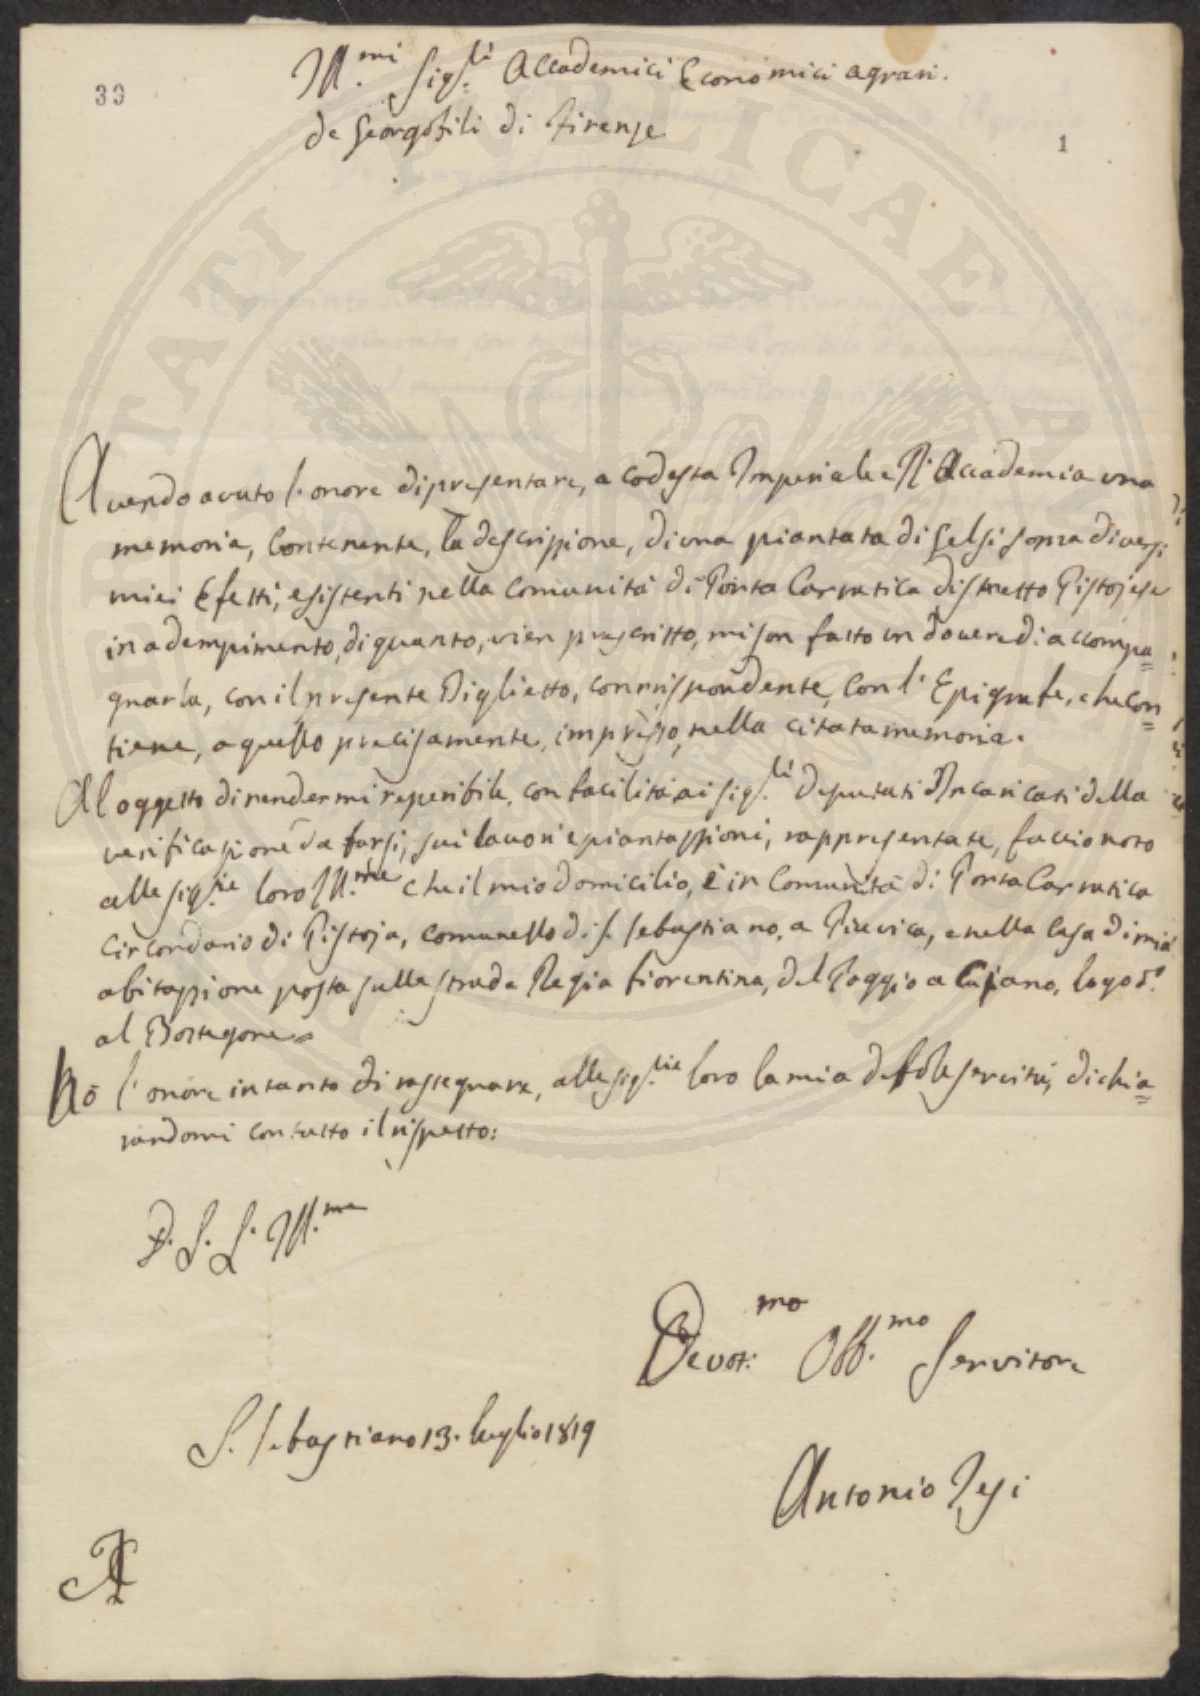 39
1
Ill.mi Sig.li Accademici Economici agrari.
de Georgofili di Firenze
Avendo avuto l'onore di presentare, a codesta Imperiale e R. Accademia una
memoria, contenente, la descrizzione, di una piantata di Gelsi sopra diversi
miei Efetti, esistenti nella comunità di Porta Carratica distretto Pistojese
in adempimento, di quanto, vien prescritto, mi son fatto un dovere di accompa=
gnarla, con il presente Biglietto, conrrispondente, con l'Epigrafe, che con=
tiene, a quello precisamente, impresso, nella citata memoria.
Al oggetto di rendermi reperibile, con facilità, ai sig.li Deputati Incaricati della
verificazione da farsi, sui lavori e piantazzioni, rappresentate, faccio noto
alle sig.rie loro Ill.me che il mio domicilio, è in Comunità di Porta Carratica
Circondario di Pistoja, comunello di S. Sebastiano, a Piuvica, e nella Casa di mia
abitazzione posta sulla strada Regia fiorentina, del Poggio a Cajano, logo d.o
al Bottegone
Hò l'onore intanto di rassegnare, alle sig.rie loro la mia debole servitù, dichia=
randomi con tutto il rispetto:
D. S. L. Ill.me
Devot.mo Obb.mo Servitore
S. Sebastiano 13. luglio 1819
Antonio Jesi